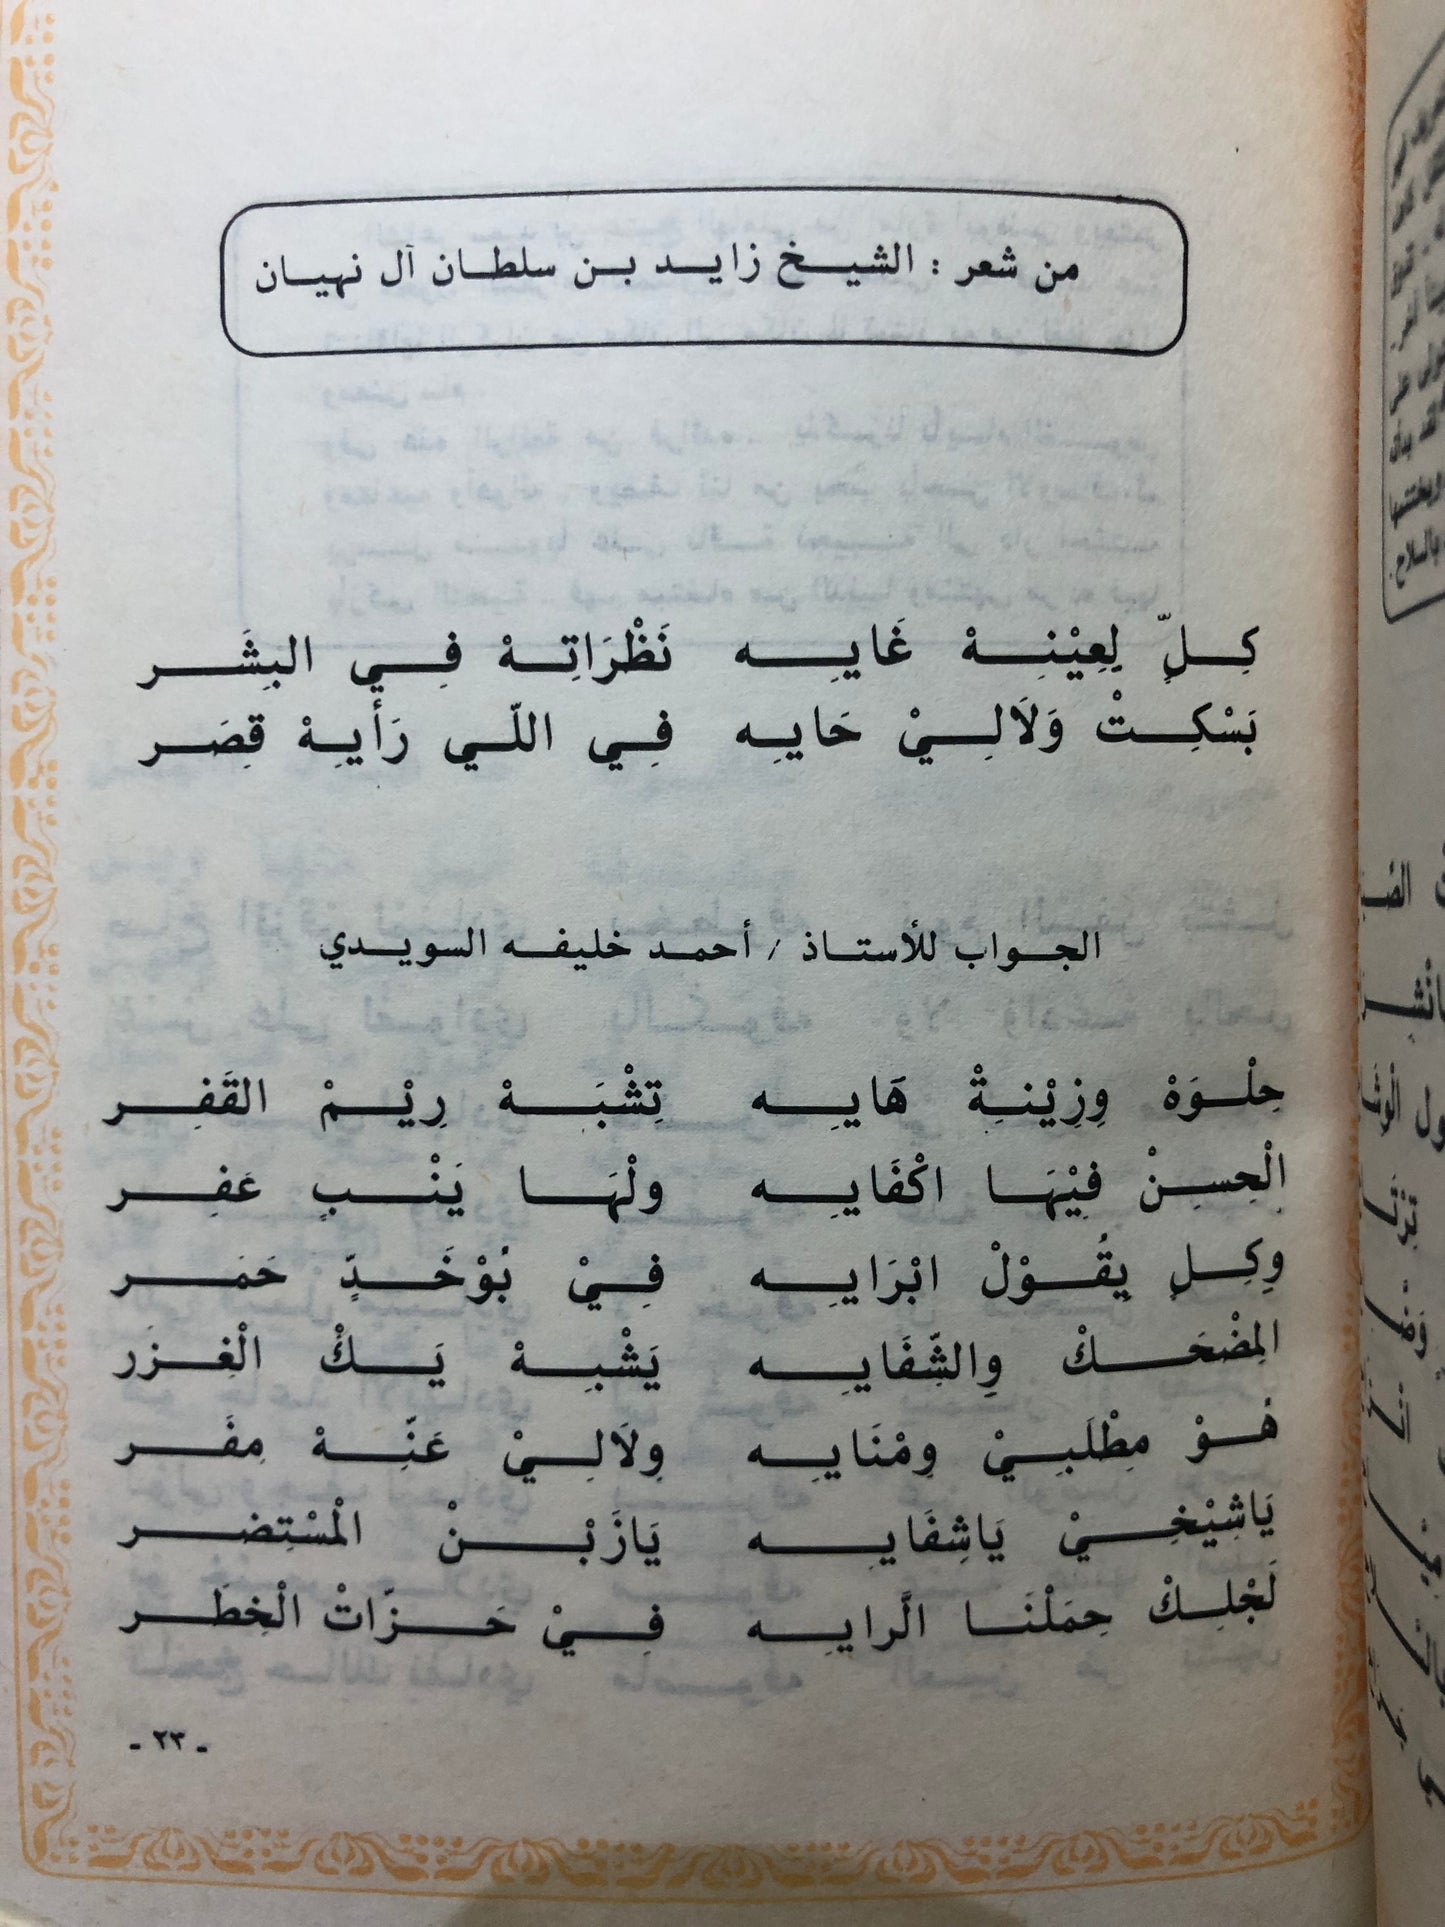 من شعر : الشيخ زايد بن سلطان آل نهيان
كِلٍّ لِعِيْنِهْ غَايِه نَظْرَاتِهْ فِي البِشَر
بَسْكِتْ وَلَالِيْ حَايِه فِي اللّي رَأيِهْ قِصَر
الجواب للأستاذ / أحمد خليفه السويدي
حِلْوَهْ وِزِيْنِهْ هَايِه تِشْبَهْ رِيْمْ القَفِر
اِلْحِسِنْ فِيْهَا اكْفَايِه ولْهَا يَنْبٍ عَفِر
وِكِلٍ يِقُوْلْ ابْرَايِه فِيْ بُوْخَدٍّ حَمَر
اِلمِضْحَكْ وِالشِّفَايِه يَشْبِهْ يَكْ الْغِزَر
هُوْ مِطْلَبِيْ وِمْنَايِه وِلَالِيْ عَنِّهْ مِفَر
يَاشِيْخِيْ يَاشِفَايِه يَازَبْنْ الْمسْتِضر
لَجْلِكْ حِمَلْنَا الَّرايِه فِيْ حَزّاتْ الْخِطَر
- ٢٣ -